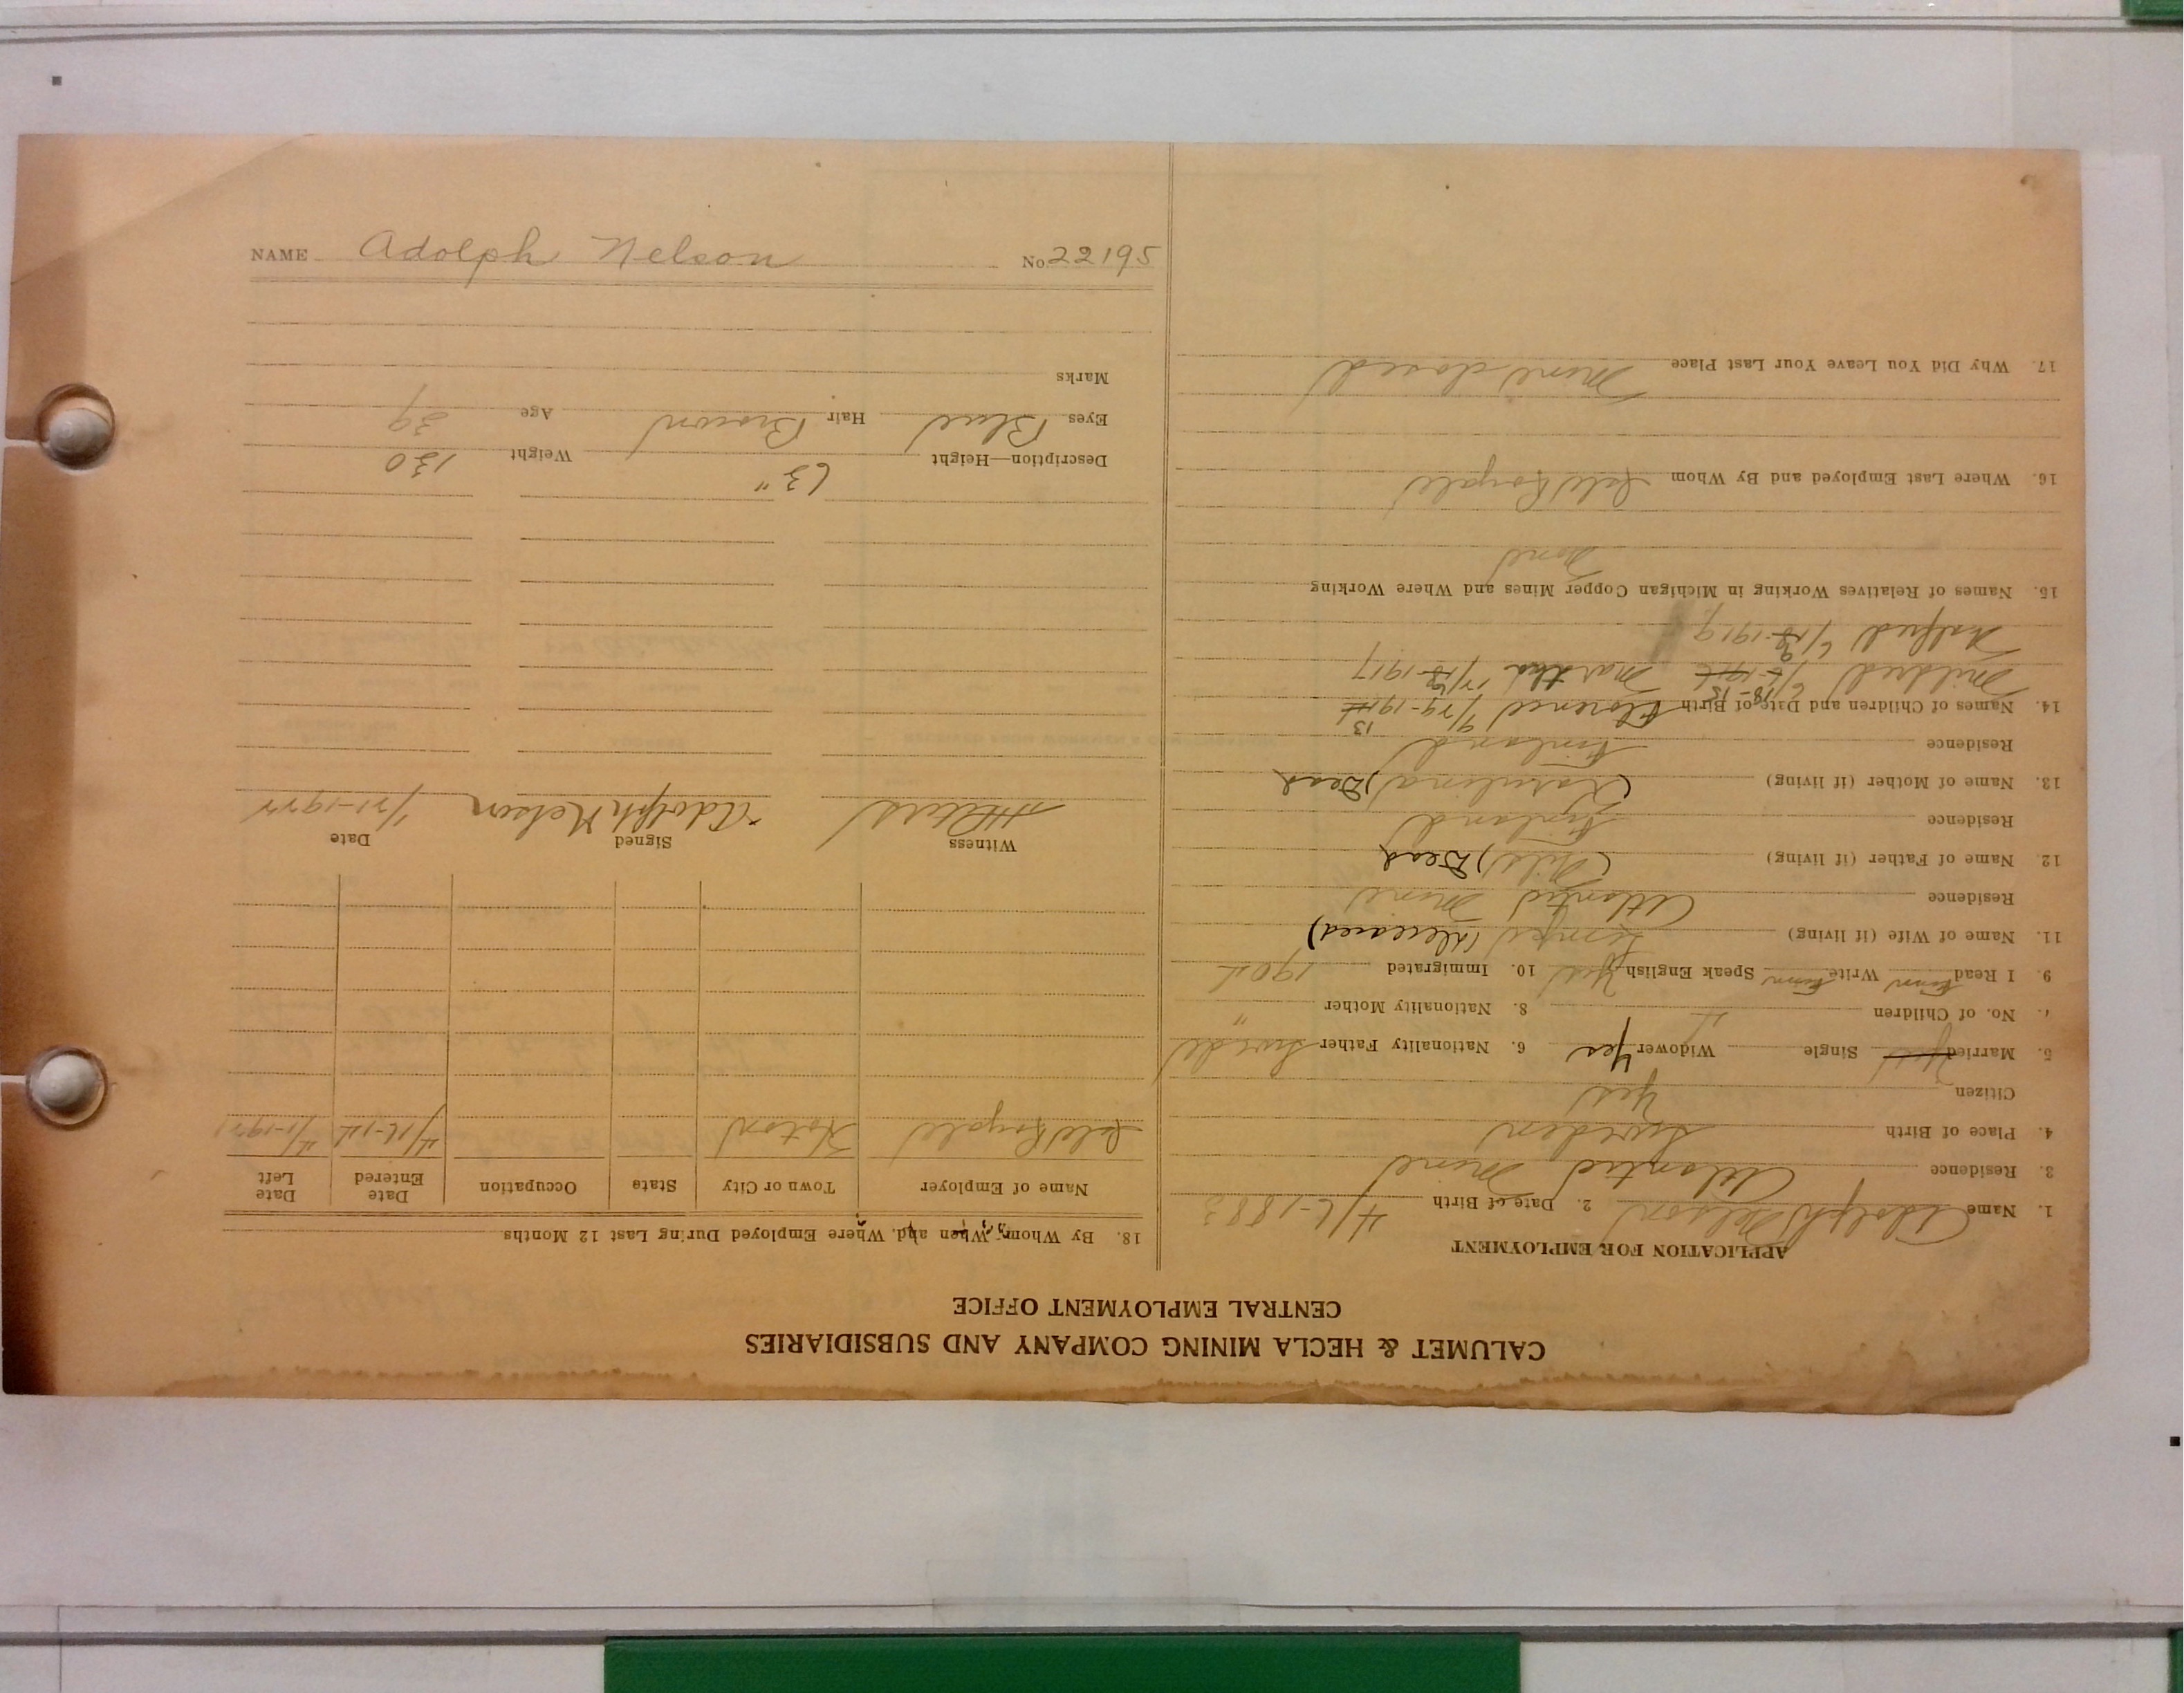 CALUMET & HECLA MINING COMPANY AND SUBSIDIARIES
CENTRAL EMPLOYMENT OFFICE
APPLICATION FOR EMPLOYMENT
1. Name Adolph Nelson 2. Date of Birth 4/6-1883
3. Residence Atlantic Mine
4. Place of Birth Sweden
Citizen Yes
5. Married Yes Single Widower Yes 6. Nationality Father Swede
7. No. of Children 4 8. Nationality Mother "
9. I Read Finn Write Finn Speak English Yes 10. Immigrated 1904
11. Name of Wife (if living) (deceased)
Residence Atlantic Mine
12. Name of Father (if living) (Nils) Dead
Residence Finland
13. Name of Mother (if living) Dead
Residence Finland
14. Names of Children and Date of Birth Florence 9/29-1914 13
Mildred 6/18-15 Martha 1917
1919
15. Names of Relatives Working in Michigan Copper Mines and Where Working
None
16. Where Last Employed and By Whom Isle Royale
17. Why Did You Leave Your Last Place Mine closed
18. By Whom, When and Where Employed During Last 12 Months
Name of Employer Town or City State Occupation Date Entered Date Left
Isle Royale Hoton 4/1-1921
Witness Signed Date
Adolph Nelson 1/21-1922
Description—Height 63" Weight 130
Eyes Blue Hair Brown Age 39
Marks
NAME Adolph Nelson No. 22195